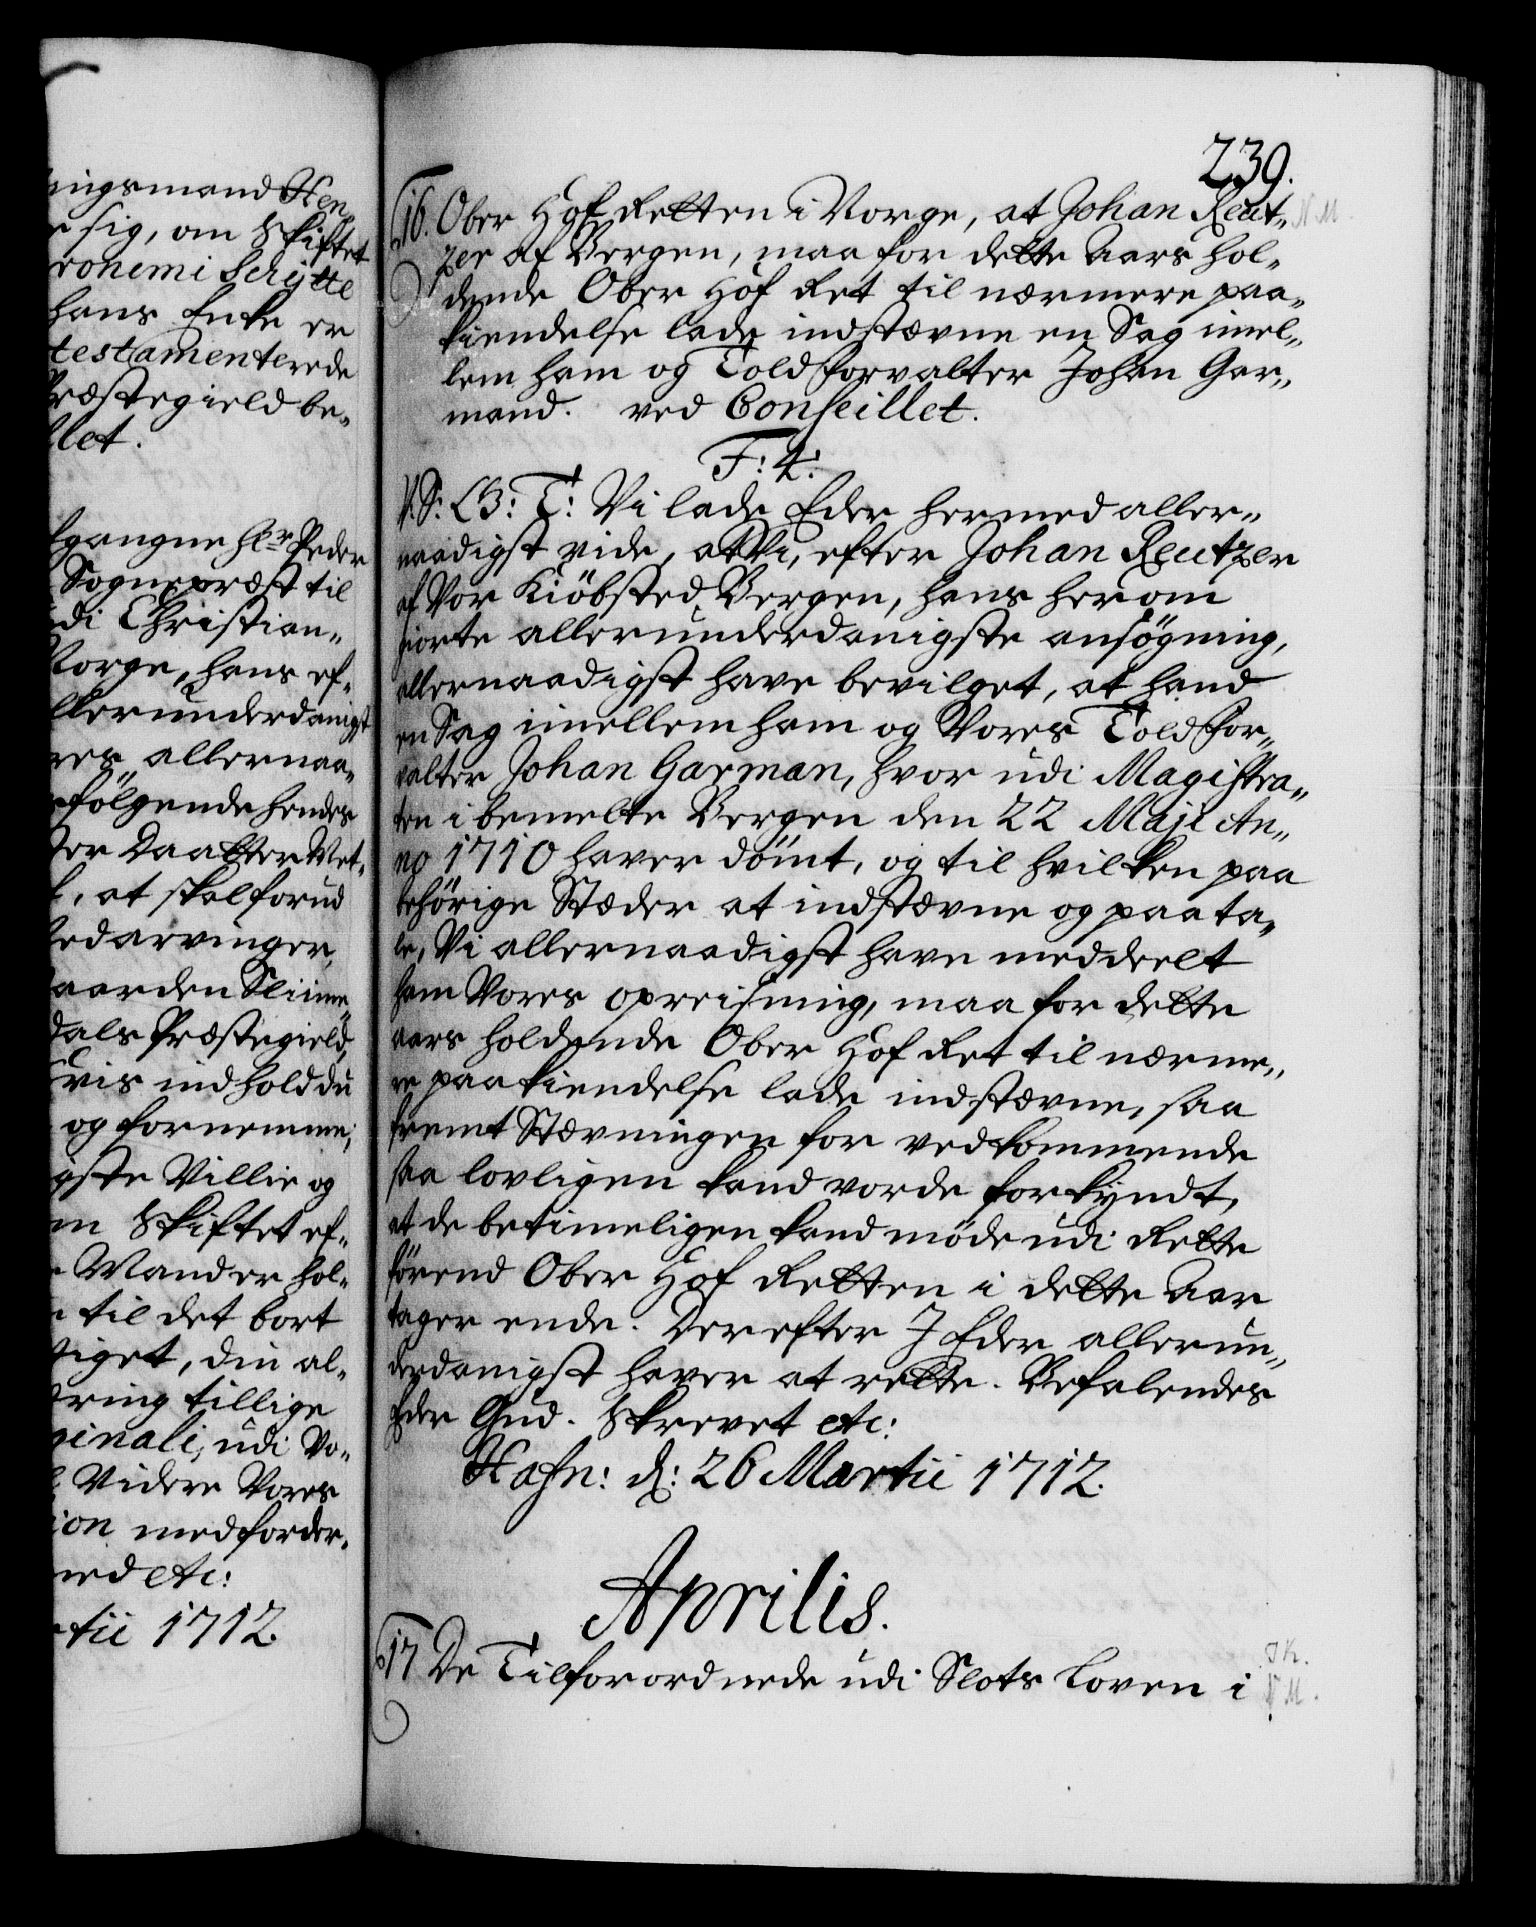 ingsmand Hen,,
sig, om Skiftet
ronimi Schÿtte
hans Enke er
testamenterede
Præstegield be,,
let.
fgangne Hr Peder
Sogneprest til
di Christian,,
Norge, hans ef,,
llerunderdanigst
res allernaa,,
følgende hendes
at skal forud
edarvinger,
aarden Sliime
dals Præstegield,
vis indhold du
og fornemme,
gste Villie og
m Skiftet ef,,
Mand er hol,,
til det bort
tiget, din al,,
ring tillige
ginali, udi Vo,,
Videre Vores
ion medforder,,
med etc:
tii 1712.
239.
16. Ober Hof Retten i Norge, at Johan Reut,, N.M.
zer af Bergen, maa for dette Aars hol,,
dende Ober Hof Ret til nærmere paa,,
kiendelse lade indstævne en Sag imel,,
lem ham og Told forvalter Johan Gar,,
mand. ved Conseillet.
F: 4:
V.S: G.B: T: Vi lade Eder hermed aller,,
naadigst vide, at Vi, efter Johan Reutzer
af Vor Kiöbsted Bergen, hans herom
giorte allerunderdanigste ansøgning,
allernaadigst have bevilget, at hand
en Sag imellem ham og Vores Told for,,
valter Johan Garman, hvor udi Magistra,,
ten i bemelte Bergen den 22 Maji An,,
no 1710 haver dömt, og til hvilken paa
behörige Stæder at indstævne og paata,,
le, Vi allernaadigst have meddeelt
ham Vores opreisning, maa for dette
aars holdende Ober Hof Ret til nærme,,
re paakiendelse lade indstævne, saa
fremt Stævningen for vedkommende
saa lovligen kand vorde forkyndt,
at de betimeligen kand møde udi Rette
förend Ober Hof Retten i dette Aar
tager ende. Derefter I Eder allerun,,
derdanigst haver at rette. Befalendes
Eder Gud. Skrevet etc:
Hafn: d: 26 Martii 1712.
Aprilis.
17 De Tilforordnede udi Slots Loven i
N M.